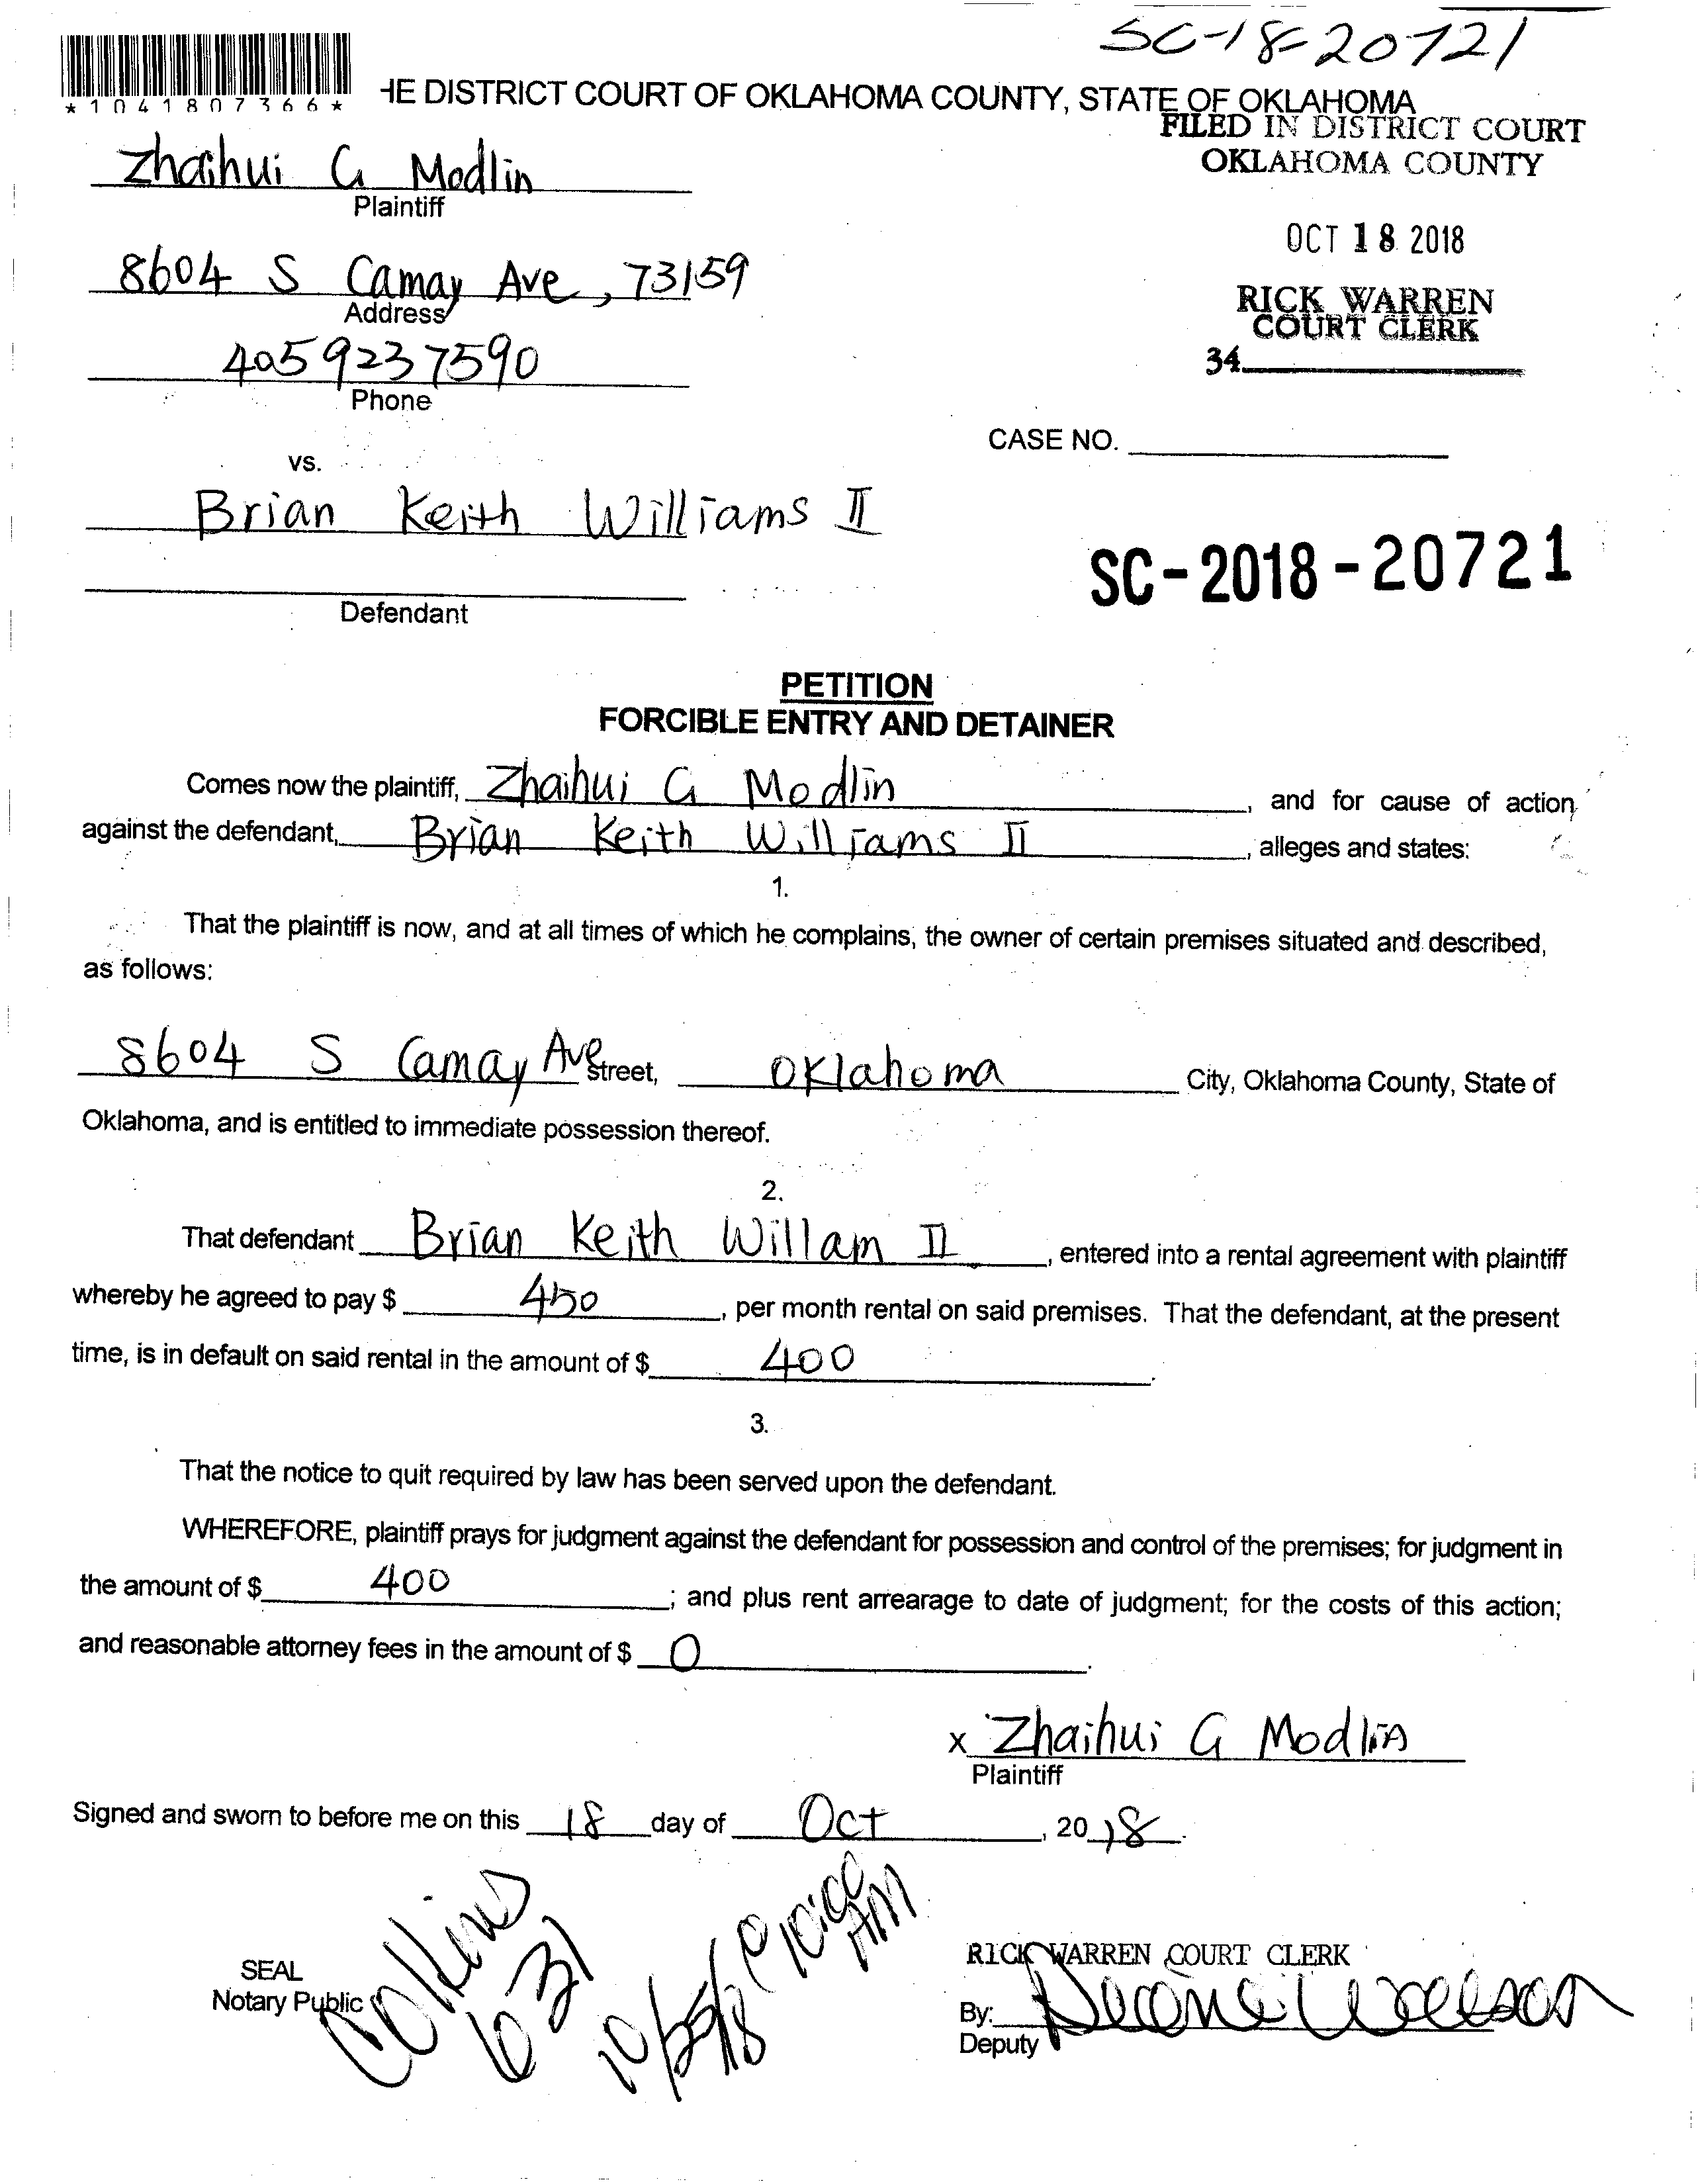 SC-18-20721
*1041807366*
HE DISTRICT COURT OF OKLAHOMA COUNTY, STATE OF OKLAHOMA
FILED IN DISTRICT COURT
OKLAHOMA COUNTY
Zhaihui G Modlin
Plaintiff
OCT 18 2018
8604 S Camay Ave, 73159
Address
RICK WARREN
COURT CLERK
34
4059237590
Phone
CASE NO.
vs.
Brian Keith Williams II
SC-2018-20721
Defendant
PETITION
FORCIBLE ENTRY AND DETAINER
Comes now the plaintiff, Zhaihui G Modlin, and for cause of action
against the defendant, Brian Keith Williams II, alleges and states:
1.
That the plaintiff is now, and at all times of which he complains, the owner of certain premises situated and described,
as follows:
8604 S Camay Ave Street, Oklahoma City, Oklahoma County, State of
Oklahoma, and is entitled to immediate possession thereof.
2.
That defendant Brian Keith Willam II, entered into a rental agreement with plaintiff
whereby he agreed to pay $ 450, per month rental on said premises. That the defendant, at the present
time, is in default on said rental in the amount of $ 400.
3.
That the notice to quit required by law has been served upon the defendant.
WHEREFORE, plaintiff prays for judgment against the defendant for possession and control of the premises; for judgment in
the amount of $ 400; and plus rent arrearage to date of judgment; for the costs of this action;
and reasonable attorney fees in the amount of $ 0.
x Zhaihui G Modlin
Plaintiff
Signed and sworn to before me on this 18 day of Oct, 2018.
Collins
631
10/25/18 @ 10:00
AM
SEAL
Notary Public
RICK WARREN COURT CLERK
By:
Deputy